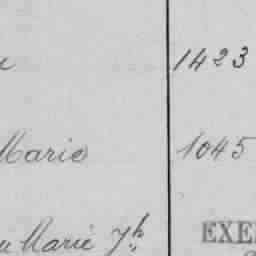 1423
Marie 1045
Marie Jh EXE